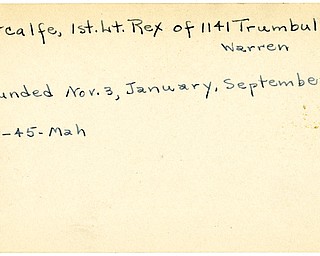 calfe, 1st. Lt. Rex of 1141 Trumbul
Warren
unded Nov. 3, January, Septembe
-45-Mah